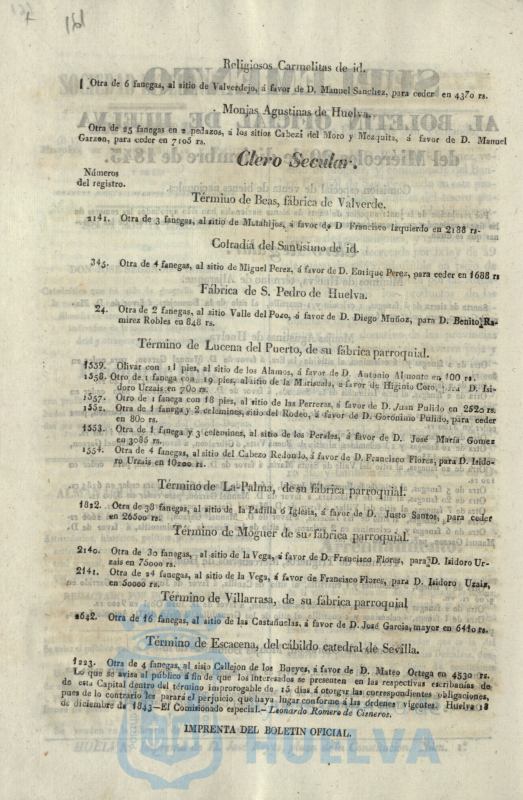 Religiosos Carmelitas de id.
Otra de 6 fanegas, al sitio de Valverdejo, á favor de D. Manuel Sanchez, para ceder en 4370 rs.
Monjas Agustinas de Huelva.
Otra de 25 fanegas en 2 pedazos, á los sitios Cabezi del Moro y Mezquita, á favor de D. Manuel
Garzon, para ceder en 7105 rs.
Clero Secular.
Números
del registro.
Término de Beas, fábrica de Valverde.
2191. Otra de 3 fanegas, al sitio de Matahijos, á favor de D Francisco Izquierdo en 2188 rs.
Cofradiá del Santisimo de id.
345. Otra de 4 fanegas, al sitio de Miguel Perez, á favor de D. Enrique Perez, para ceder en 1688 rs
Fábrica de S. Pedro de Huelva.
24. Otra de 2 fanegas, al sitio Valle del Pozo, á favor de D. Diego Muñoz, para D. Benito Ra-
mirez Robles en 848 rs.
Término de Lucena del Puerto, de su fábrica parroquial.
1539. Olivar con 11 pies, al sitio de los Alamos, á favor de D. Antonio Almonte en 100 rs.
1558. Otro de 1 fanega con 19 pies, al sitio de la Mariscala, á favor de Higinio Coro, D. Isi-
doro Urzais en 760 rs.
1557. Otro de 1 fanega con 18 pies, al sitio de las Perreras, á favor de D. Juan Pulido en 2520 rs.
1552. Otra de 1 fanega y 2 celemines, sitio del Rodeo, á favor de D. Gorónimo Pulido, para ceder
en 800 rs.
1553. Otra de 1 fanega y 3 celemines, al sitio de los Perales, á favor de D. José María Gomez
en 3085 rs.
1554. Otra de 4 fanegas, al sitio del Cabezo Redondo, á favor de D. Francisco Flores, para D. Isido-
ro Urzais en 10200 rs.
Término de La-Palma, de su fábrica parroquial.
1812. Otra de 38 fanegas, al sitio de la Padilla ó Iglesia, á favor de D. Justo Santos, para ceder
en 26500 rs.
Término de Moguer de su fábrica parroquial.
2140. Otra de 30 fanegas, al sitio de la Vega, á favor de D. Francisco Flores, para D. Isidoro Ur-
zais en 75000 rs.
2141. Otra de 24 fanegas, al sitio de la Vega, á favor de Francisco Flores, para D. Isidoro Urzais,
en 50000 rs.
Término de Villarrasa, de su fábrica parroquial
1642. Otra de 16 fanegas, al sitio de las Castañuelas, á favor de D. José Garcia, mayor en 6410 rs.
Término de Escacena, del cábildo catedral de Sevilla.
1223. Otra de 4 fanegas, al sitio Callejon de los Bueyes, á favor de D. Mateo Ortega en 4530 rs.
Lo que se avisa al público á fin de que los interesados se presenten en las respectivas escribanias de
de esta Capital dentro del término improrogable de 15 dias á otorgar las correspondientes obligaciones,
pues de lo contrario les parará el perjuicio que haya lugar conforme á las órdenes vigentes. Huelva 18
de diciembre de 1843—El Comisionado especial.—Leonardo Romero de Cisneros.
IMPRENTA DEL BOLETIN OFICIAL.
HUELVA